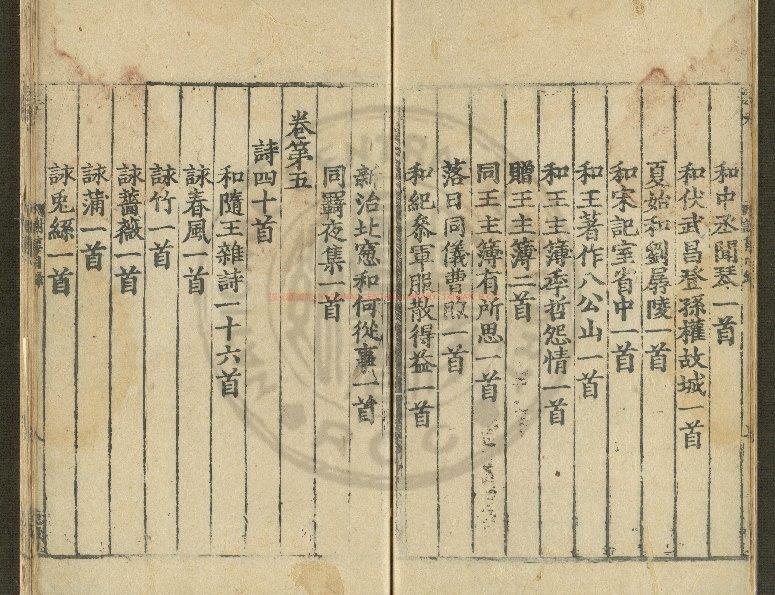 和中丞聞琴一首
和伏武昌登孫權故城一首
夏始和劉孱陵一首
和宋記室省中一首
和王著作八公山一首
和王主簿季哲怨情一首
贈王主簿二首
同王主簿有所思一首
落日同儀曹煦一首
和紀叅軍服散得益一首
新治北窓和何從事一首
同羇夜集一首
卷第五
詩四十首
和隨王雜詩一十六首
詠春風一首
詠竹一首
詠薔薇一首
詠蒲一首
詠兎絲一首